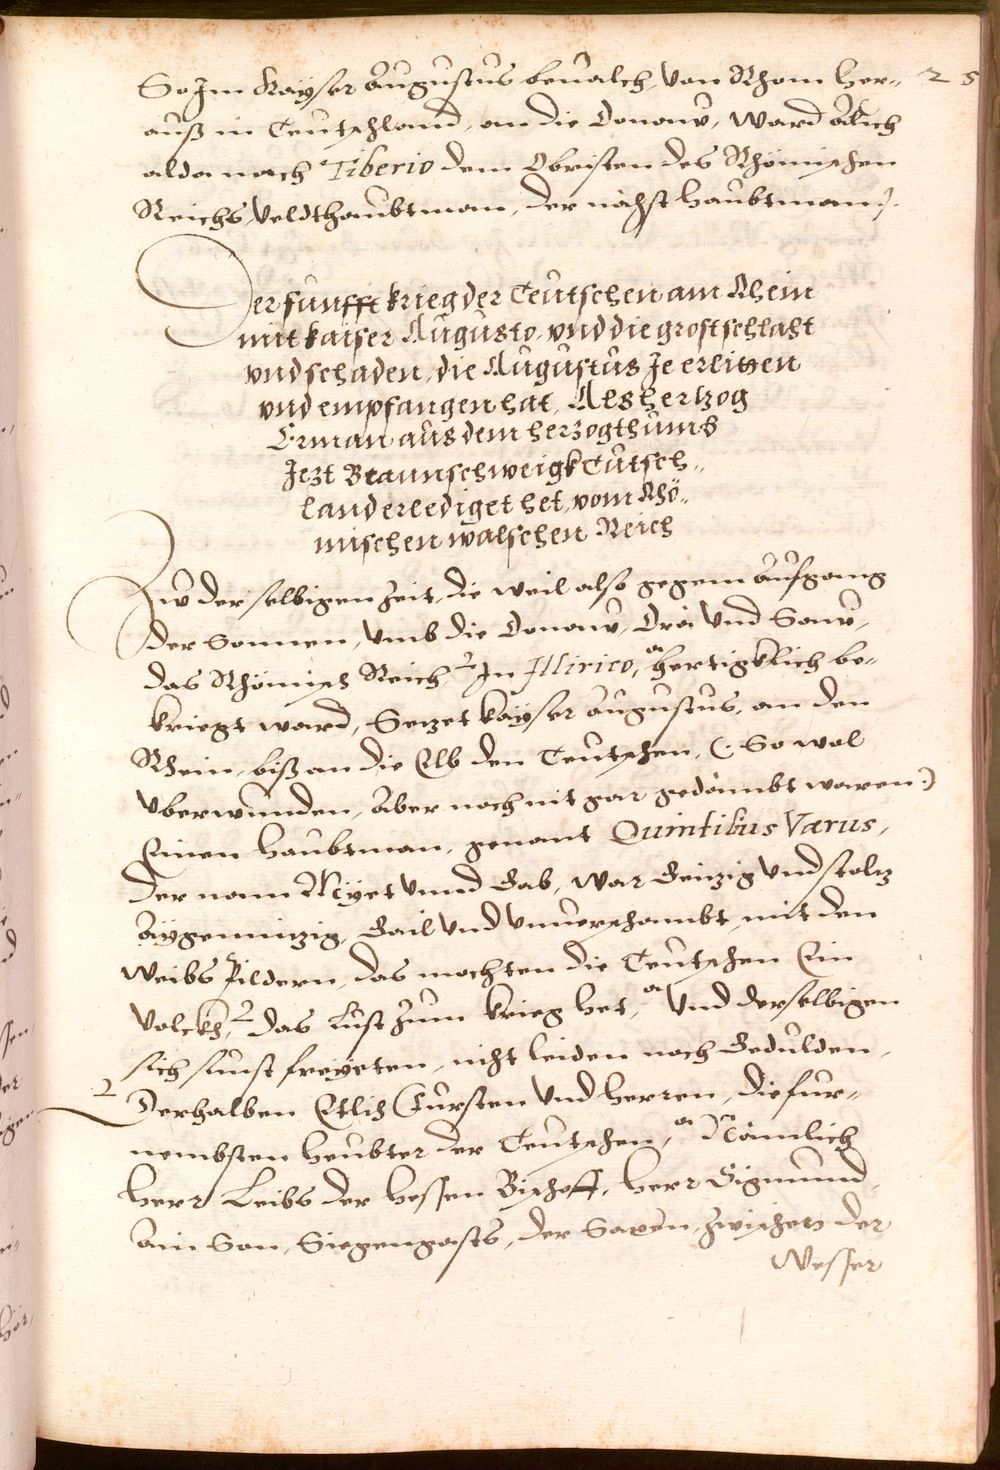 So Im Kayser Augustus beualch, von Rhom her-
25
auß in Teutschland, an die Donaw, ward Ä
alda nach Tiberio dem Obristen des Rhömischen
Reichs Veldthaubtman, der nächst haubtman.
Der funfft krieg der Teutschen am Rhein
mit kaiser Augusto, vnd die grost schlaht
vnd schaden, die Augustus Je erlitten
vnd empfangen hat, Als hertzog
Erman aus dem herzogthumb
Jezt Braunschweigk Tutsch-
land erlediget het, vom Rhö-
mischen walschen Reich
Zw der selbigen Zeit, die weil also gegem Aufgang
der Sonnen, vmb die Donaw, Dra vnd Saw,
das Rhömisch Reich In Illirico, hertigklich be-
kriegt ward, Sezet kayser Augustus, an den
Rhein, biß an die Elb den Teutschen, (: So wol
vberwunden, Aber noch nit gar gedämbt waren :)
Einen haubtman, genant Quintilius Varus,
Der nam Myet vnnd Gab, war Geizig vnd stolz
Aygennüzig, Gail vnd vnuerschambt, mit den
Weibs Pildern, das mochten die Teutschen Ein
volckh, das Lust zum krieg het, vnd derselbigen
sich sunst freyeten, nicht leiden noch Gedulden,
Derhalben Etlich Fürsten vnd herren, die für-
nembsten heubter der Teutschen, Nämlich
herr Leibs der hessen Bischoff, herr Sigmund,
Ain Son, Siegengasts, der Saxen, zwischen der
Wesser